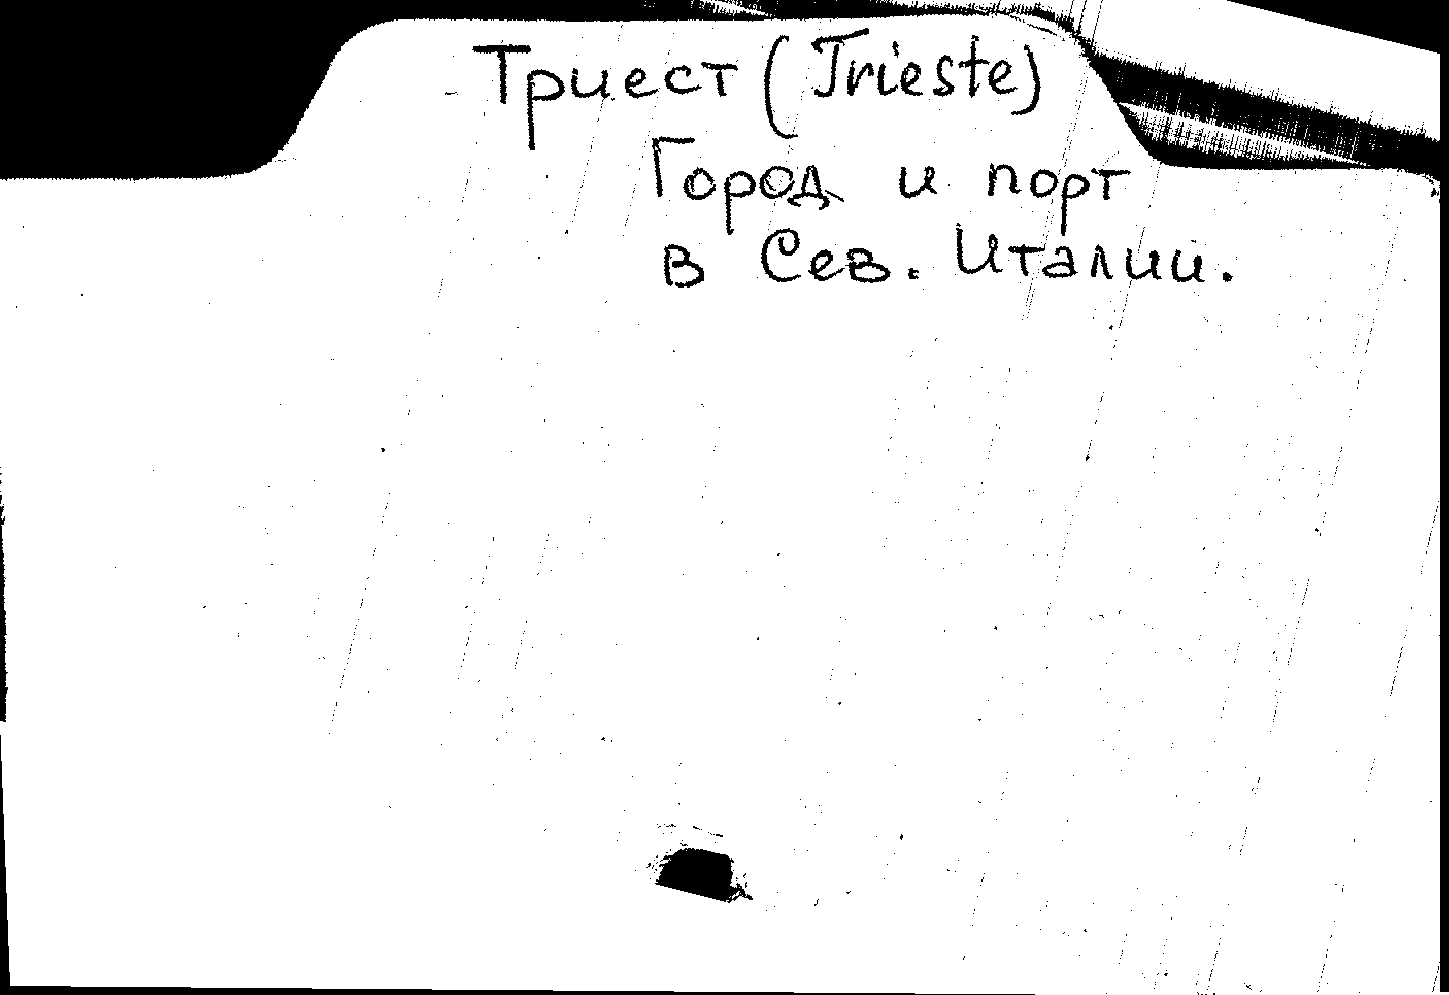 Триест (Trieste)
Город и порт
в Сев. Италии.